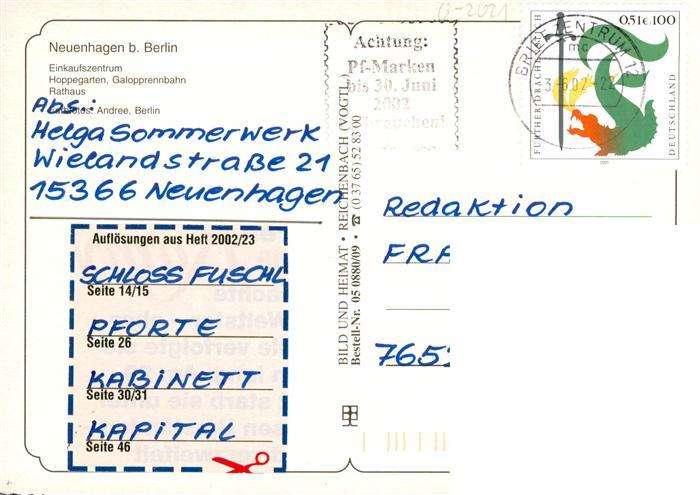 Q-2021
Neuenhagen b. Berlin
Einkaufszentrum
Hoppegarten, Galopprennbahn
Rathaus
Fotos: Andree, Berlin
Abs.:
Helga Sommerwerk
Wielandstraße 21
15366 Neuenhagen
Auflösungen aus Heft 2002/23
SCHLOSS FUSCHL
Seite 14/15
PFORTE
Seite 26
KABINETT
Seite 30/31
KAPITAL
Seite 46
BILD UND HEIMAT • REICHENBACH (VOGTL)
Bestell-Nr. 05 0880/09 • ☎ (0 37 65) 52 83 00
Achtung:
Pf-Marken
bis 30. Juni
2002
BRIEFZENTRUM 12
mc
3.6.02 - 22
FURTHER DRACHENSTICH
0,51€ 100
DEUTSCHLAND
Redaktion
FRA
765